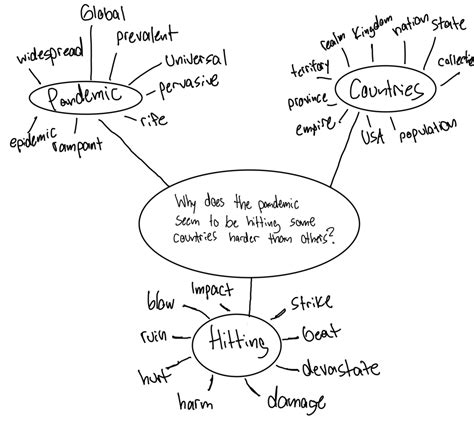 Global
prevalent
widespread
Universal
pervasive
Pandemic
rife
epidemic
rampant
realm
Kingdom
nation
state
territory
collective
Countries
province
empire
USA
population
Why does the pandemic
seem to be hitting some
countries harder than others?
Impact
blow
strike
ruin
beat
Hitting
hurt
devastate
harm
damage